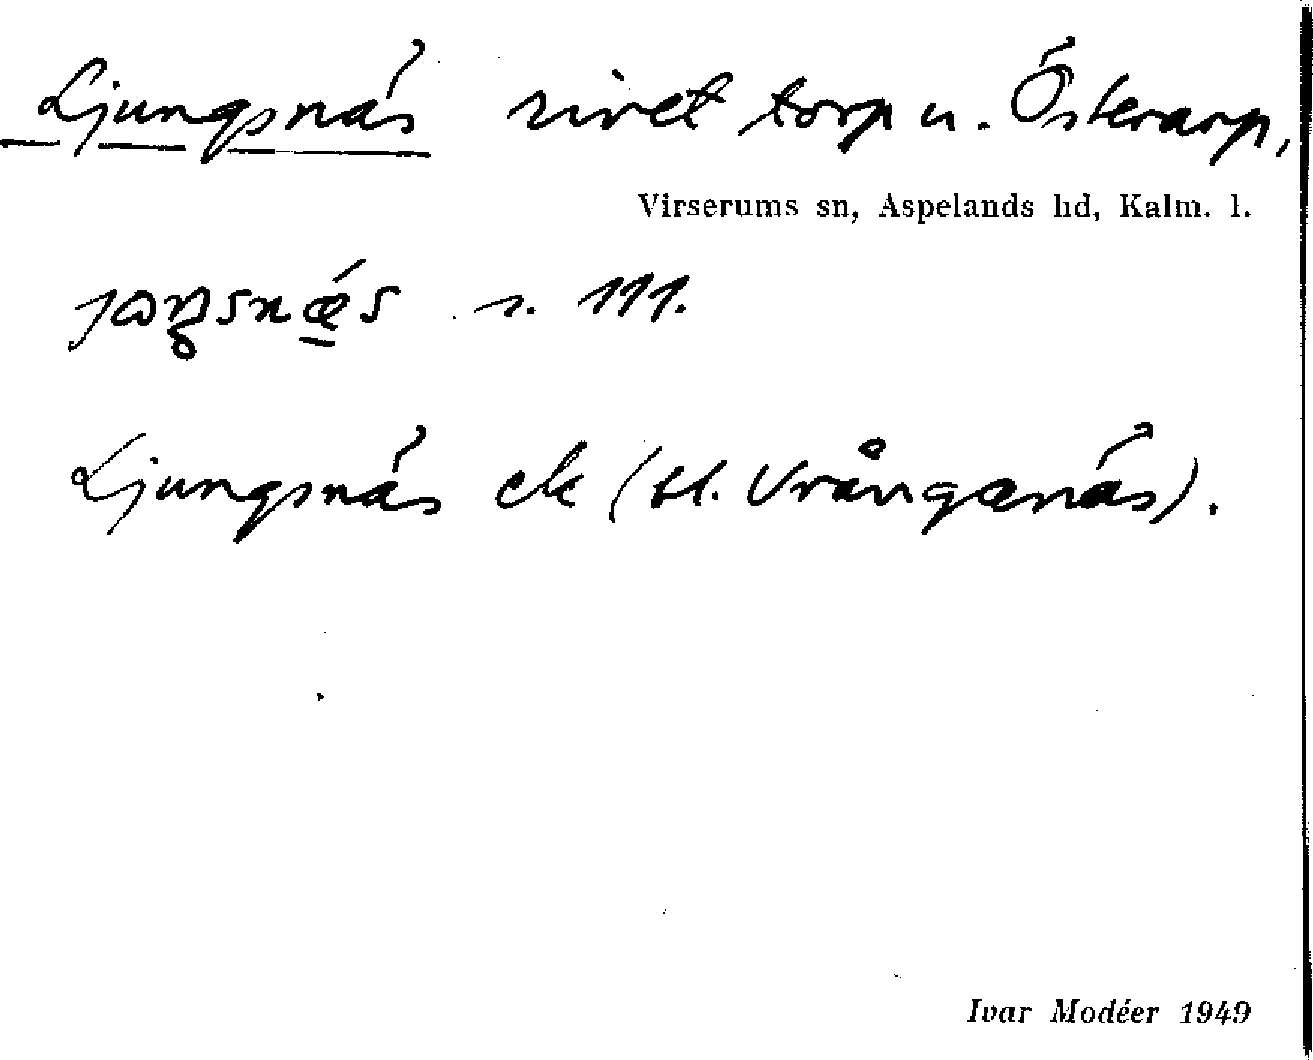 Ljungsnäs rivet torp u. Österarp,
Virserums sn, Aspelands hd, Kalm. l.
s. 111.
Ljungsnäs ek (bl. Vrångenäs).
Ivar Modéer 1949